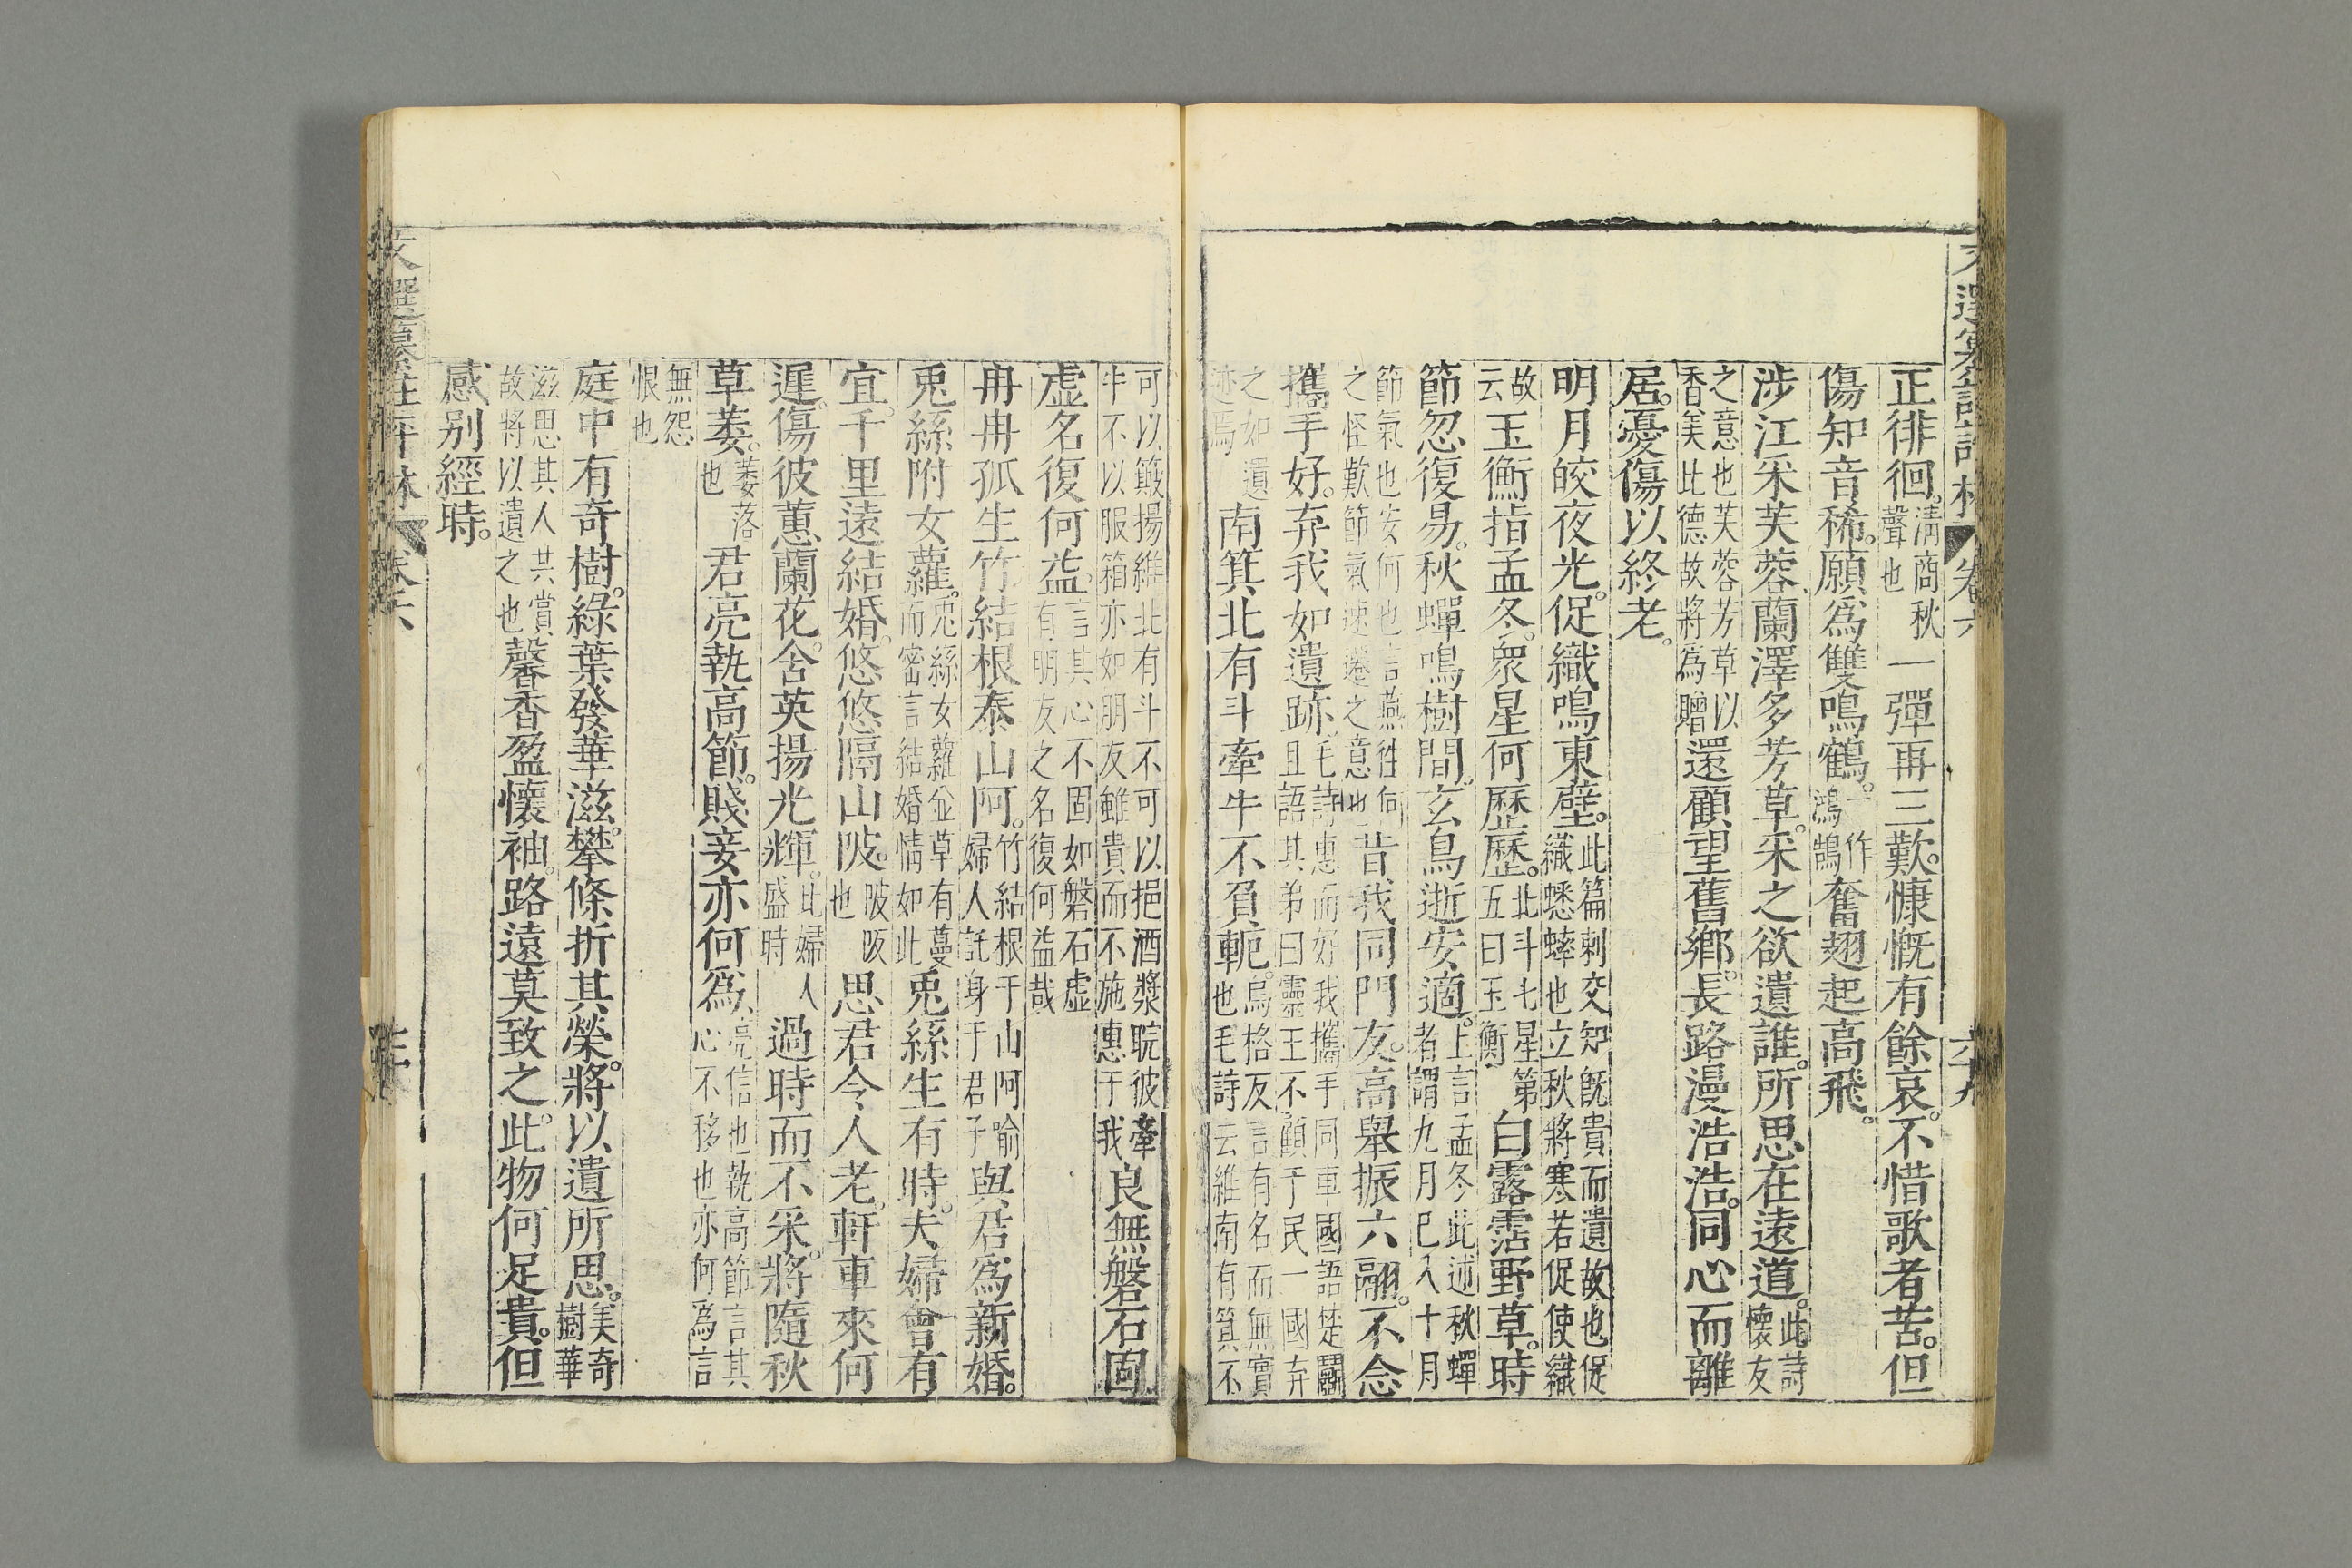 正徘徊。清商秋聲也一彈再三歎。慷慨有餘哀。不惜歌者苦。但
傷知音稀。願爲雙鳴鶴。一作鴻鵠奮翅起高飛。
涉江采芙蓉。蘭澤多芳草。采之欲遺誰。所思在遠道。此詩懷友
之意也芙蓉芳草以香美比德故將爲贈還顧望舊鄉。長路漫浩浩。同心而離
居。憂傷以終老。
明月皎夜光。促織鳴東壁。此篇刺交知旣貴而遺故也促織蟋蟀也立秋將寒若促使織
故云玉衡指孟冬。衆星何歷歷。北斗七星第五曰玉衡白露霑野草。時
節忽復易。秋蟬鳴樹間。玄鳥逝安適。上言孟冬此述秋蟬者謂九月已入十月
節氣也安何也言燕徃何之怪歎節氣速遷之意也昔我同門友。高舉振六翮。不念
攜手好。弃我如遺跡。毛詩惠而好我攜手同車國語楚鬭且語其弟曰靈王不顧于民一國弃
之如遺迹焉南箕北有斗牽牛不負軛。烏格反言有名而無實也毛詩云維南有箕不
可以簸揚維北有斗不可以挹酒漿睆彼牽牛不以服箱亦如朋友雖貴而不施惠于我良無磐石固
虛名復何益。言其心不固如磐石虛有朋友之名復何益哉
冉冉孤生竹結根泰山阿。竹結根于山阿喻婦人託身于君子與君爲新婚。
兎絲附女蘿。兎絲女蘿並草有蔓而密言結婚情如此兎絲生有時。夫婦會有
宜。千里遠結婚。悠悠隔山陂。陂阪也思君令人老。軒車來何
遲。傷彼蕙蘭花。含英揚光輝。比婦人盛時過時而不采。將隨秋
草萎。萎落也君亮執高節。賤妾亦何爲。亮信也執高節言其心不移也亦何爲言
無怨恨也
庭中有奇樹。綠葉發華滋。攀條折其榮。將以遺所思。美奇樹華
滋思其人共賞故將以遺之也馨香盈懷袖。路遠莫致之。此物何足貴。但
感別經時。